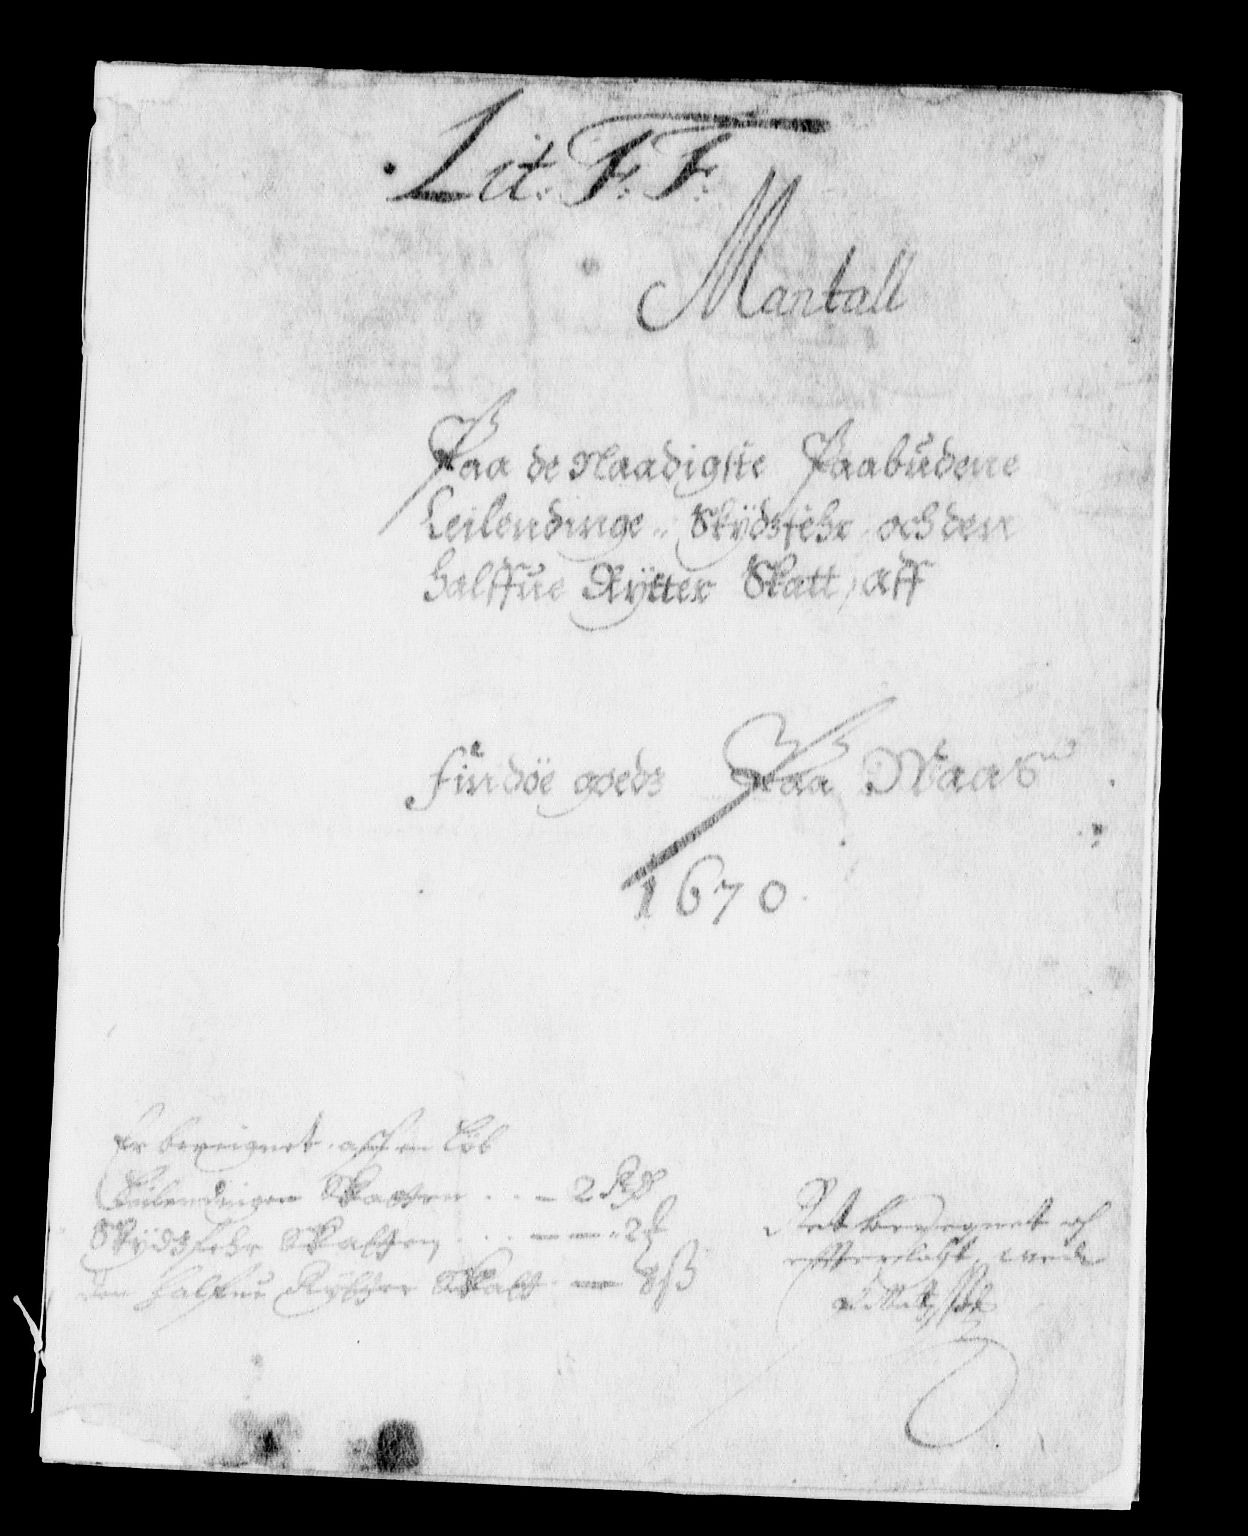 Lit: F: F:
Mantall
Paa de Naadigste Paabudene
Leilendinge- Skÿdsfehr och den
halffue Rÿtter Skatt, aff
findöe goeds Paa Waar
1670.
Er beregnet aff en Löb
Leilendingen Skatten - 2
Skÿds fehr Skatten - 2
den halfue Rÿtter Skatt - 8 ß
Ret beregnet och